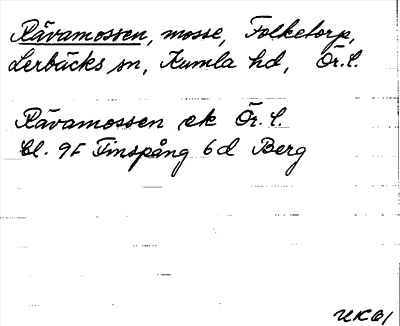 Rävamossen, mosse, Folketorp,
Lerbäcks sn, Kumla hd, Ör. l.
Rävamossen ek Ör. l.
Bl. 9F Finspång 6d Berg